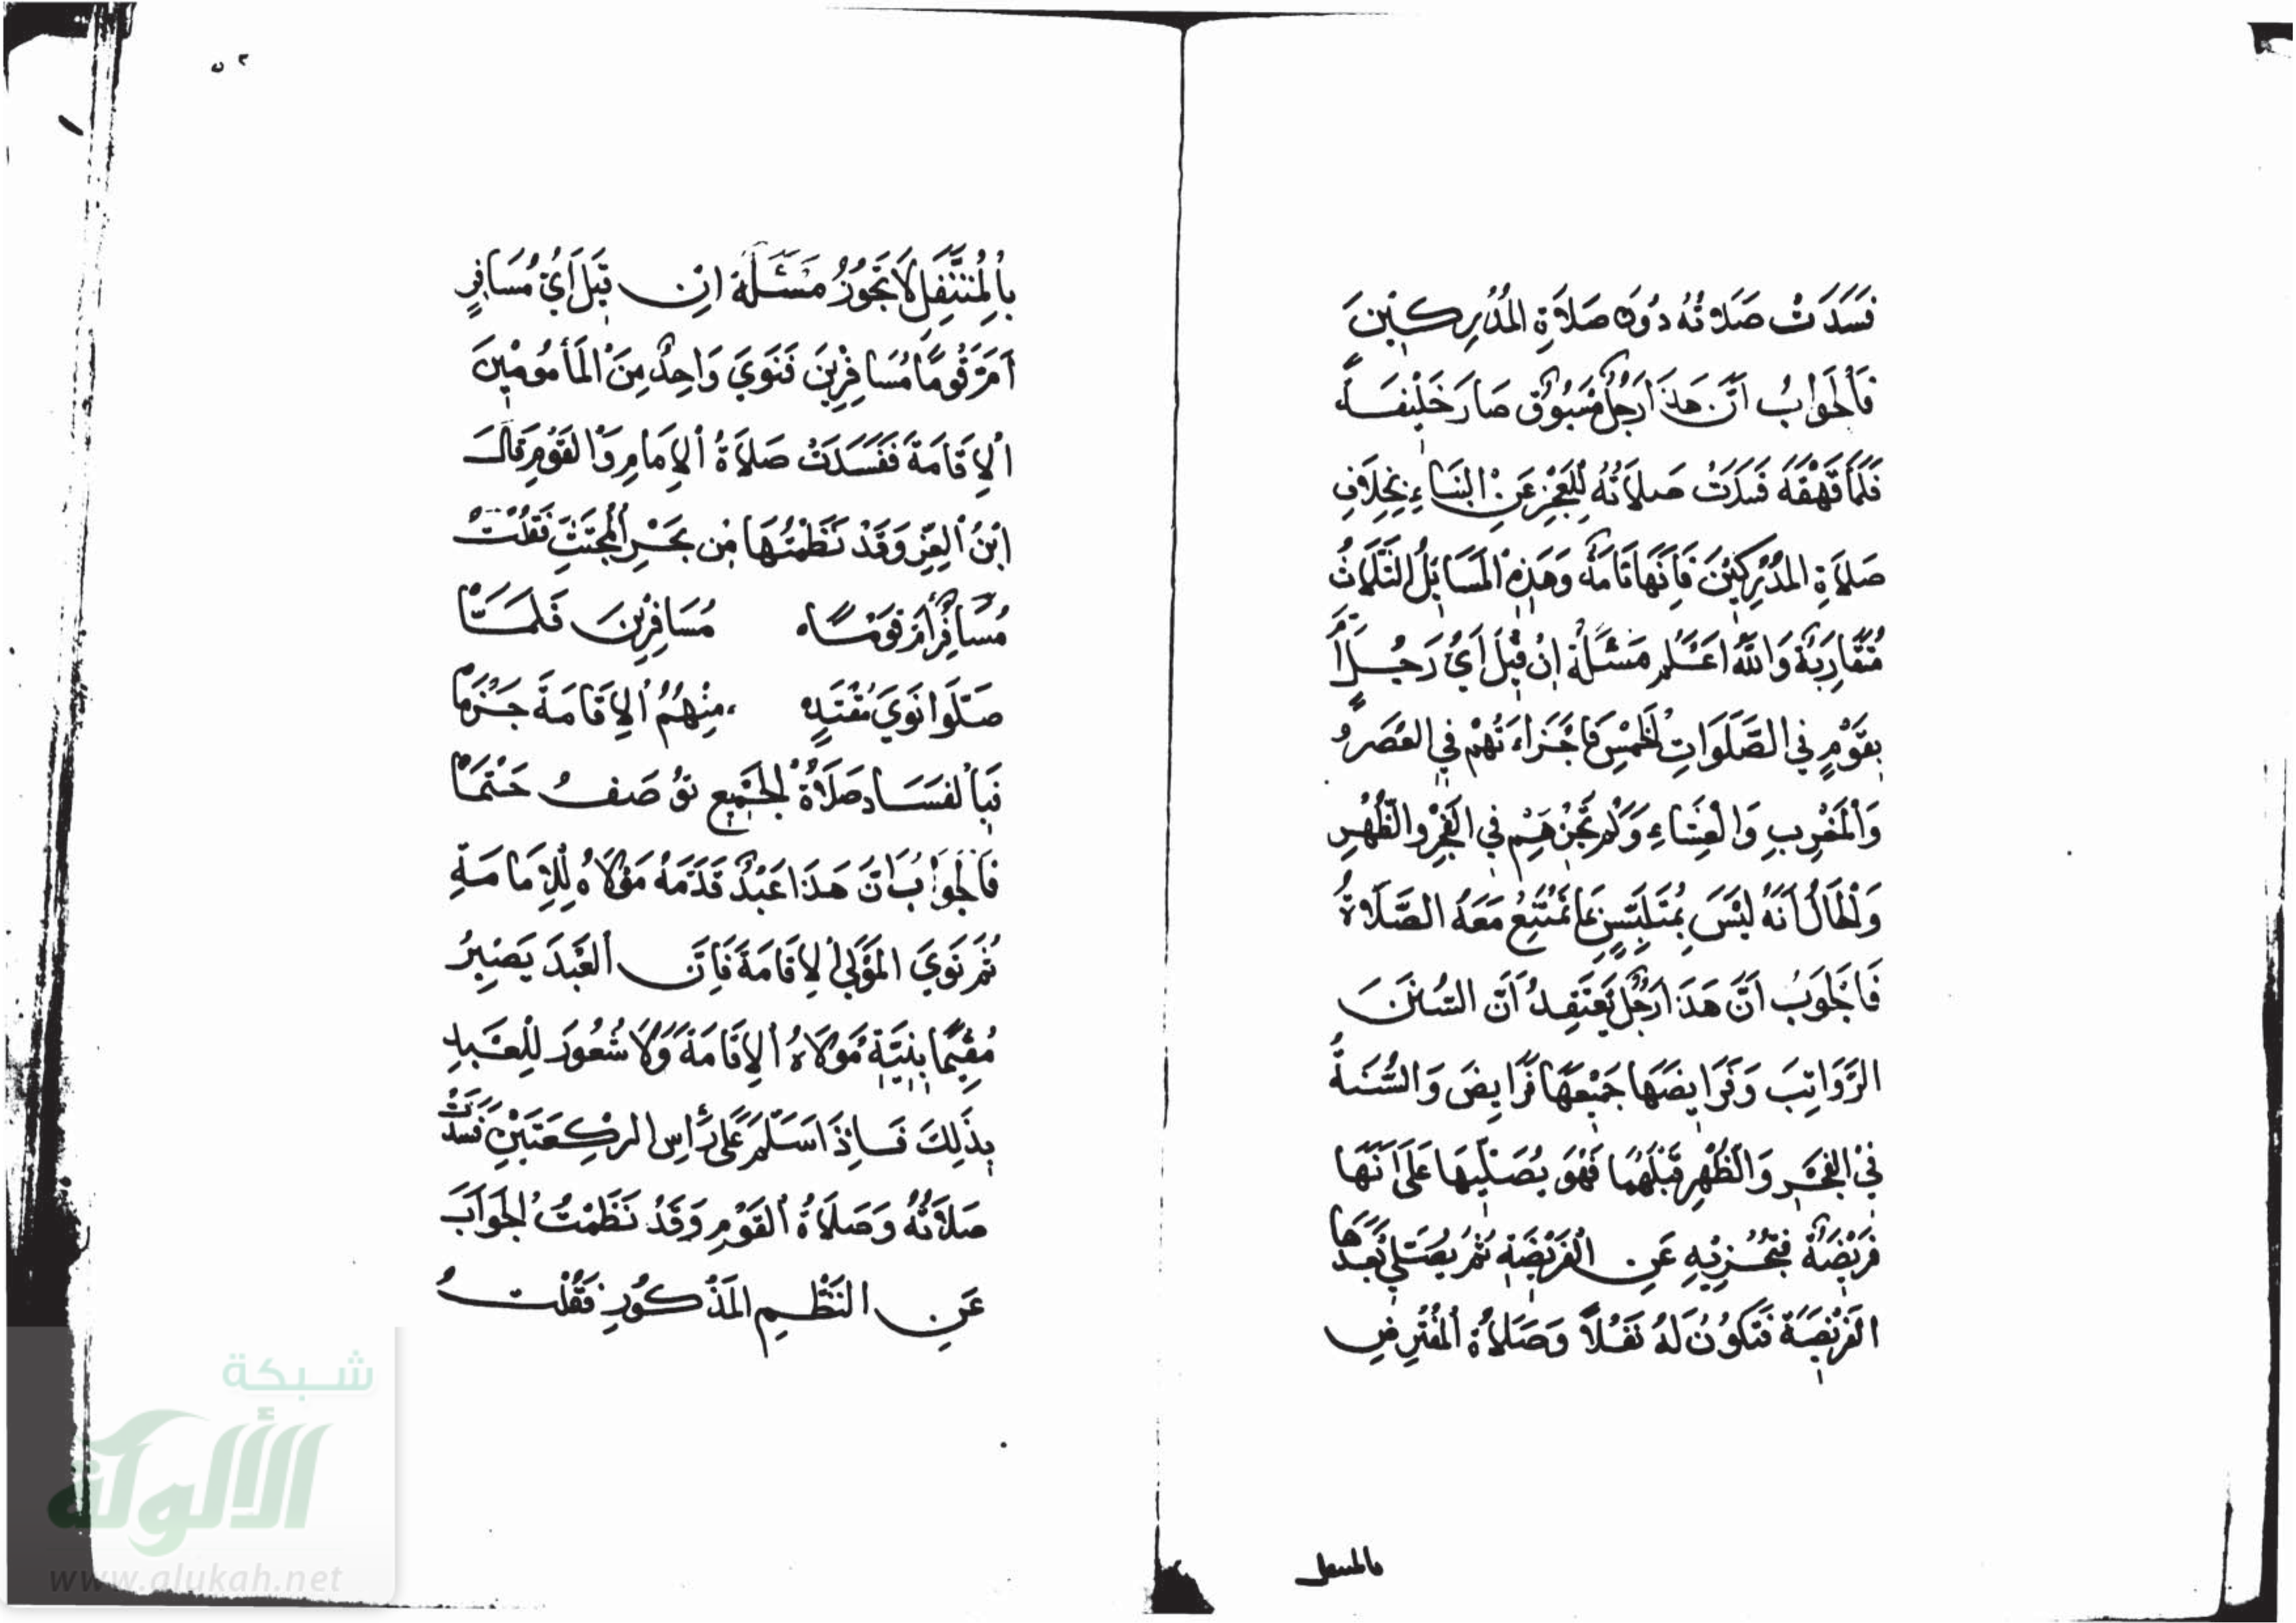 فَسَدَتْ صَلَاتُهُ دُونَ صَلَاةِ الْمُدْرِكِينَ
فَالْجَوَابُ أَنَّ هَذَا رَجُلٌ مَسْبُوقٌ صَارَ خَلِيفَةً
فَلَمَّا قَهْقَهَ فَسَدَتْ صَلَاتُهُ لِلْعَجْزِ عَنِ الْبِنَاءِ بِخِلَافِ
صَلَاةِ الْمُدْرِكِينَ فَإِنَّهَا تَامَّةٌ وَهَذِهِ الْمَسَائِلُ الثَّلَاثُ
مُتَقَارِبَةٌ وَاللَّهُ أَعْلَمُ مَسْئَلَةٌ إِنْ قِيلَ أَيُّ رَجُلٍ أَمَّ
بِقَوْمٍ فِي الصَّلَوَاتِ الْخَمْسِ فَأَجْزَاءَتْهُمْ فِي الْعَصْرِ وَ
وَالْمَغْرِبِ وَالْعِشَاءِ وَلَمْ تَجْزِهِمْ فِي الْفَجْرِ وَالظُّهْرِ
وَالْحَالُ أَنَّهُ لَيْسَ بِمُتَلَبِّسٍ بِمَا تَمْتَنِعُ مَعَهُ الصَّلَاةُ
فَالْجَوَبُ أَنَّ هَذَا رَجُلٌ يَعْتَقِدُ أَنَّ السُّنَنَ
الرَّوَاتِبَ وَفَرَايِضَهَا جَمِيْعَهَا فَرَايِضَ وَالسُّنَةُ
فِي الْفَجْرِ وَالظُّهْرِ قَبْلَهُمَا فَهُوَ يُصَلِّيهَا عَلَى أَنَّهَا
فَرِيْضَةٌ فَتُجْزِيْهِ عَنِ الْفَرِيْضَةِ ثُمَّ يُصَلِّي بَعْدَهَا
الْفَرِيْضَةَ فَتَكُونُ لَهُ نَفْلًا وَصَلَاةُ الْمُفْتَرِضِ
بالمتنفل
٥٢
بِالْمُتَنَفِّلِ لَا تَجُوزُ مَسْئَلَةٌ إِنْ قِيلَ أَيُّ مُسَافِرٍ
أَمَّ قَوْمًا مُسَافِرِينَ فَنَوَى وَاحِدٌ مِنَ الْمَأْمُومِينَ
الْإِقَامَةَ فَفَسَدَتْ صَلَاةُ الْإِمَامِ وَالْقَوْمِ قَالَ
ابْنُ الْعِزِّ وَقَدْ نَظَمْتُهَا مِنْ بَحْرِ الْمُجْتَثِّ فَقُلْتُ
مُسَافِرٌ أَمَّ قَوْمًا مُسَافِرِينَ فَلَمَّا
صَلَّوا نَوَى مُقْتَدٍ مِنْهُمْ الْإِقَامَةَ جَزْمًا
فَبِالْفَسَادِ صَلَاةُ الْجَمِيعِ تُوْصَفُ حَتْمًا
فَالْجَوَابُ أَنَّ هَذَا عَبْدٌ قَدَّمَهُ مَوْلَاهُ لِلْإِمَامَةِ
ثُمَّ نَوَى الْمَوْلَى الْإِقَامَةَ فَإِنَّ الْعَبْدَ يَصِيْرُ
مُقِيمًا بِنِيَّةِ مَوْلَاهُ الْإِقَامَةَ وَلَا شُعُورَ لِلْعَبْدِ
بِذَلِكَ فَإِذَا سَلَّمَ عَلَى رَأْسِ الرَّكْعَتَيْنِ فَسَدَتْ
صَلَاتُهُ وَصَلَاةُ الْقَوْمِ وَقَدْ نَظَمْتُ الْجَوَابَ
عَنِ النَّظْمِ الْمَذْكُورِ فَقُلْتُ
شبكة
الألوكة
www.alukah.net